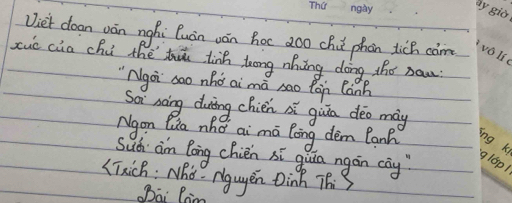 Thứ ngày
ấy giờ
Viết đoạn văn nghị luận văn học 200 chữ phân tích cảm
xúc của chủ thể trữ tình trong những dòng thơ sau:
vô lí c
"Ngôi sao nhớ ai mà sao lấp lánh
Soi sáng đường chiến sĩ giữa đèo mây
Ngọn lửa nhớ ai mà lồng đêm lạnh
Sưởi ấm lòng chiến sĩ giữa ngàn cây"
<Trích: Nhớ - Nguyễn Đình Thi>
Bài làm